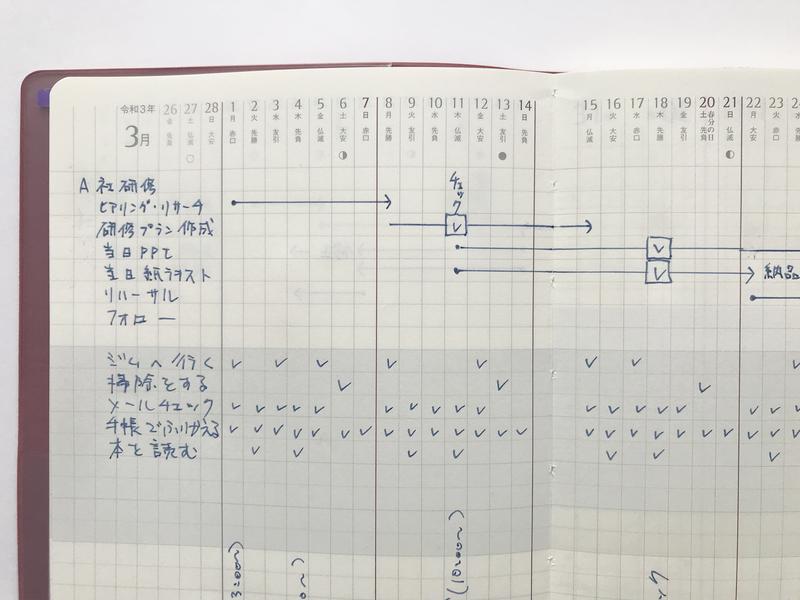 令和3年 3月
26 27 28 1 2 3 4 5 6 7 8 9 10 11 12 13 14 15 16 17 18 19 20 21 22 23 24
金 土 日 月 火 水 木 金 土 日 月 火 水 木 金 土 日 月 火 水 木 金 土 日 月 火
先負 仏滅 大安 赤口 先勝 友引 先負 仏滅 大安 赤口 先勝 友引 先負 仏滅 大安 友引 先負 仏滅 大安 赤口 先勝 友引 春分の日 先負 仏滅 大安 赤口
チェック
A社研修
ヒアリング・リサーチ
研修プラン作成
当日PPT
当日紙テキスト
納品
リハーサル
フォロー
ジムへ行く
掃除をする
メールチェック
手帳でふりかえる
本を読む